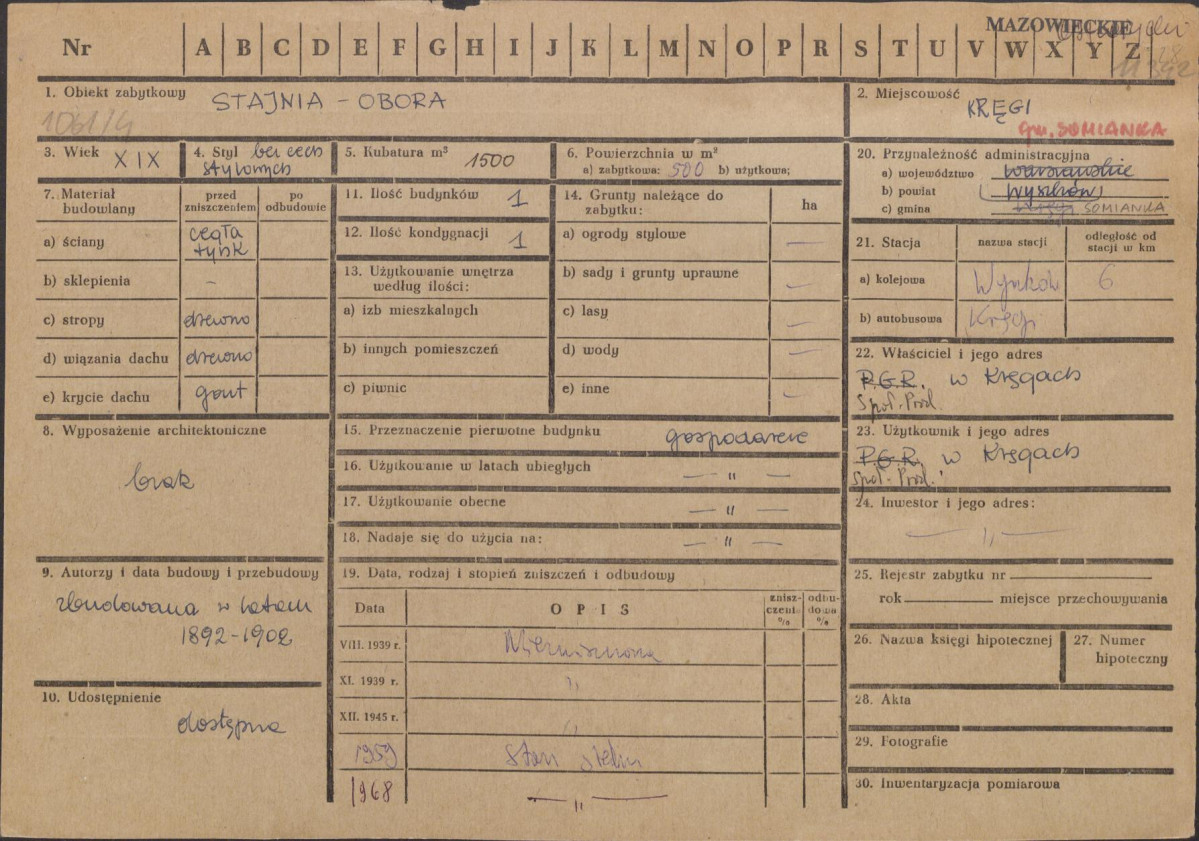 MAZOWIECKIE
Nr A B C D E F G H I J K L M N O P R S T U V W X Y Z
1. Obiekt zabytkowy STAJNIA - OBORA
1061/4
2. Miejscowość
KRĘGI
gm. SOMIANKA
3. Wiek XIX
4. Styl bez cech
stylowych
5. Kubatura m³ 1500
6. Powierzchnia w m²
a) zabytkowa: 500 b) użytkowa;
20. Przynależność administracyjna
a) województwo warszawskie
b) powiat (Wyszków)
c) gmina SOMIANKA
7. Materiał
budowlany
przed
zniszczeniem
po
odbudowie
a) ściany cegła
tynk
b) sklepienia -
c) stropy drewno
d) wiązania dachu drewno
e) krycie dachu gont
11. Ilość budynków 1
12. Ilość kondygnacji 1
13. Użytkowanie wnętrza
według ilości:
a) izb mieszkalnych
b) innych pomieszczeń
c) piwnic
14. Grunty należące do
zabytku:
ha
a) ogrody stylowe —
b) sady i grunty uprawne —
c) lasy —
d) wody —
e) inne —
21. Stacja
nazwa stacji
odległość od
stacji w km
a) kolejowa Wyszków 6
b) autobusowa Kręgi
22. Właściciel i jego adres
P.G.R. w Kręgach
Spół. Prod.
8. Wyposażenie architektoniczne
brak
15. Przeznaczenie pierwotne budynku gospodarcze
16. Użytkowanie w latach ubiegłych — „ —
17. Użytkowanie obecne — „ —
18. Nadaje się do użycia na: — „ —
23. Użytkownik i jego adres
P.G.R. w Kręgach
Spół. Prod.
24. Inwestor i jego adres:
— „ —
9. Autorzy i data budowy i przebudowy
zbudowana w latach
1892-1902
10. Udostępnienie
dostępna
19. Data, rodzaj i stopień zniszczeń i odbudowy
Data
OPIS
znisz-
czenia
%
odbu-
dowa
%
VIII. 1939 r. Niezniszczona
XI. 1939 r. „
XII. 1945 r. „
1959 Stan średni
1968 — „ —
25. Rejestr zabytku nr
rok miejsce przechowywania
26. Nazwa księgi hipotecznej
27. Numer
hipoteczny
28. Akta
29. Fotografie
30. Inwentaryzacja pomiarowa